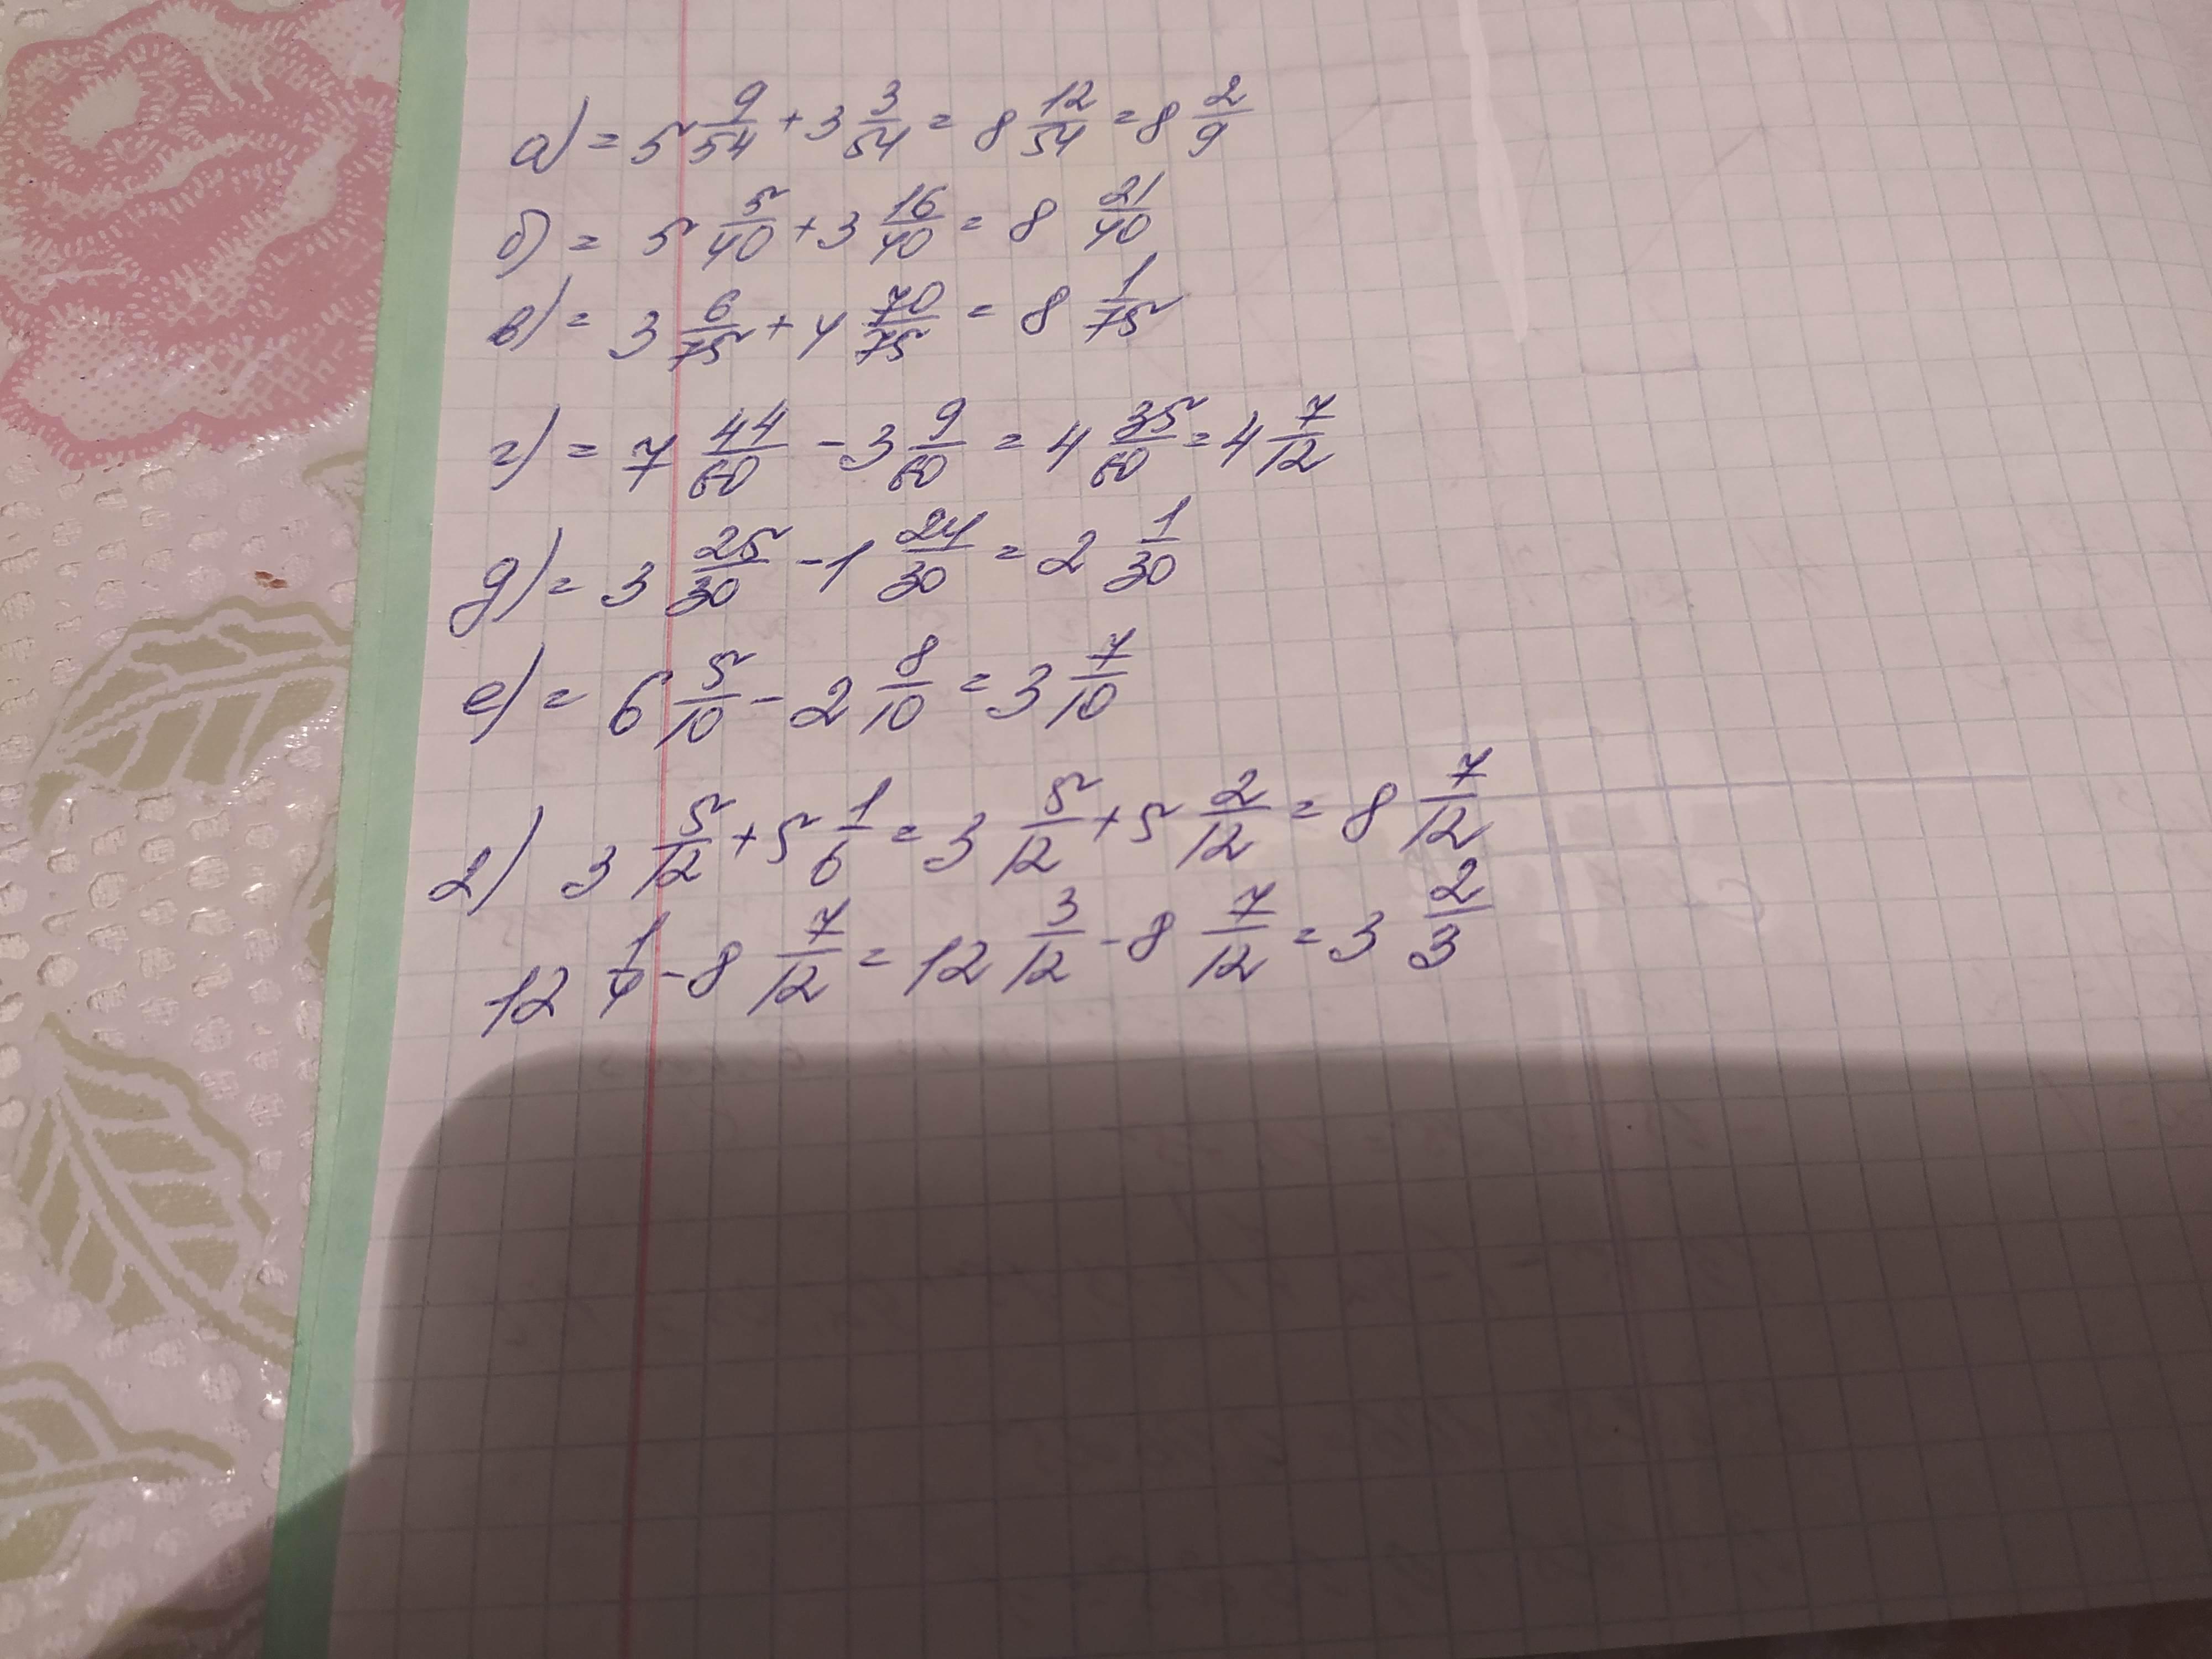 а) = 5 9/54 + 3 3/54 = 8 12/54 = 8 2/9
б) = 5 5/40 + 3 16/40 = 8 21/40
в) = 3 6/75 + 4 70/75 = 8 1/75
г) = 7 44/60 - 3 9/60 = 4 35/60 = 4 7/12
д) = 3 25/30 - 1 24/30 = 2 1/30
е) = 6 5/10 - 2 8/10 = 3 7/10
2) 3 5/12 + 5 1/6 = 3 5/12 + 5 2/12 = 8 7/12
12 1/4 - 8 7/12 = 12 3/12 - 8 7/12 = 3 2/3